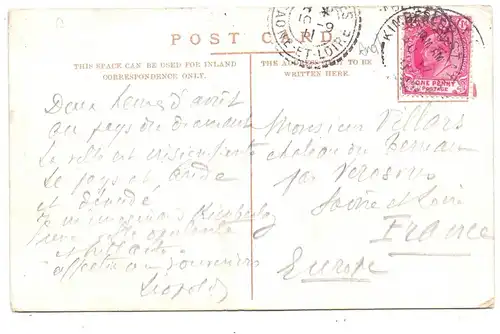 POST CARD.
THIS SPACE CAN BE USED FOR INLAND
CORRESPONDENCE ONLY.
THE ADDRESS TO BE
WRITTEN HERE.
ET-LOIRE
ONE PENNY
POSTAGE
Deux heures d'arrêt
au pays du diamant
La ville est insignifiante
Le pays est aride
et dénudé,
Je m'imaginais Kimberley
une ville opulente
et brillante.
affectueux souvenirs
Léopold
Monsieur Villars
château du Terreau
par Verosvres
Saône et Loire
France
Europe